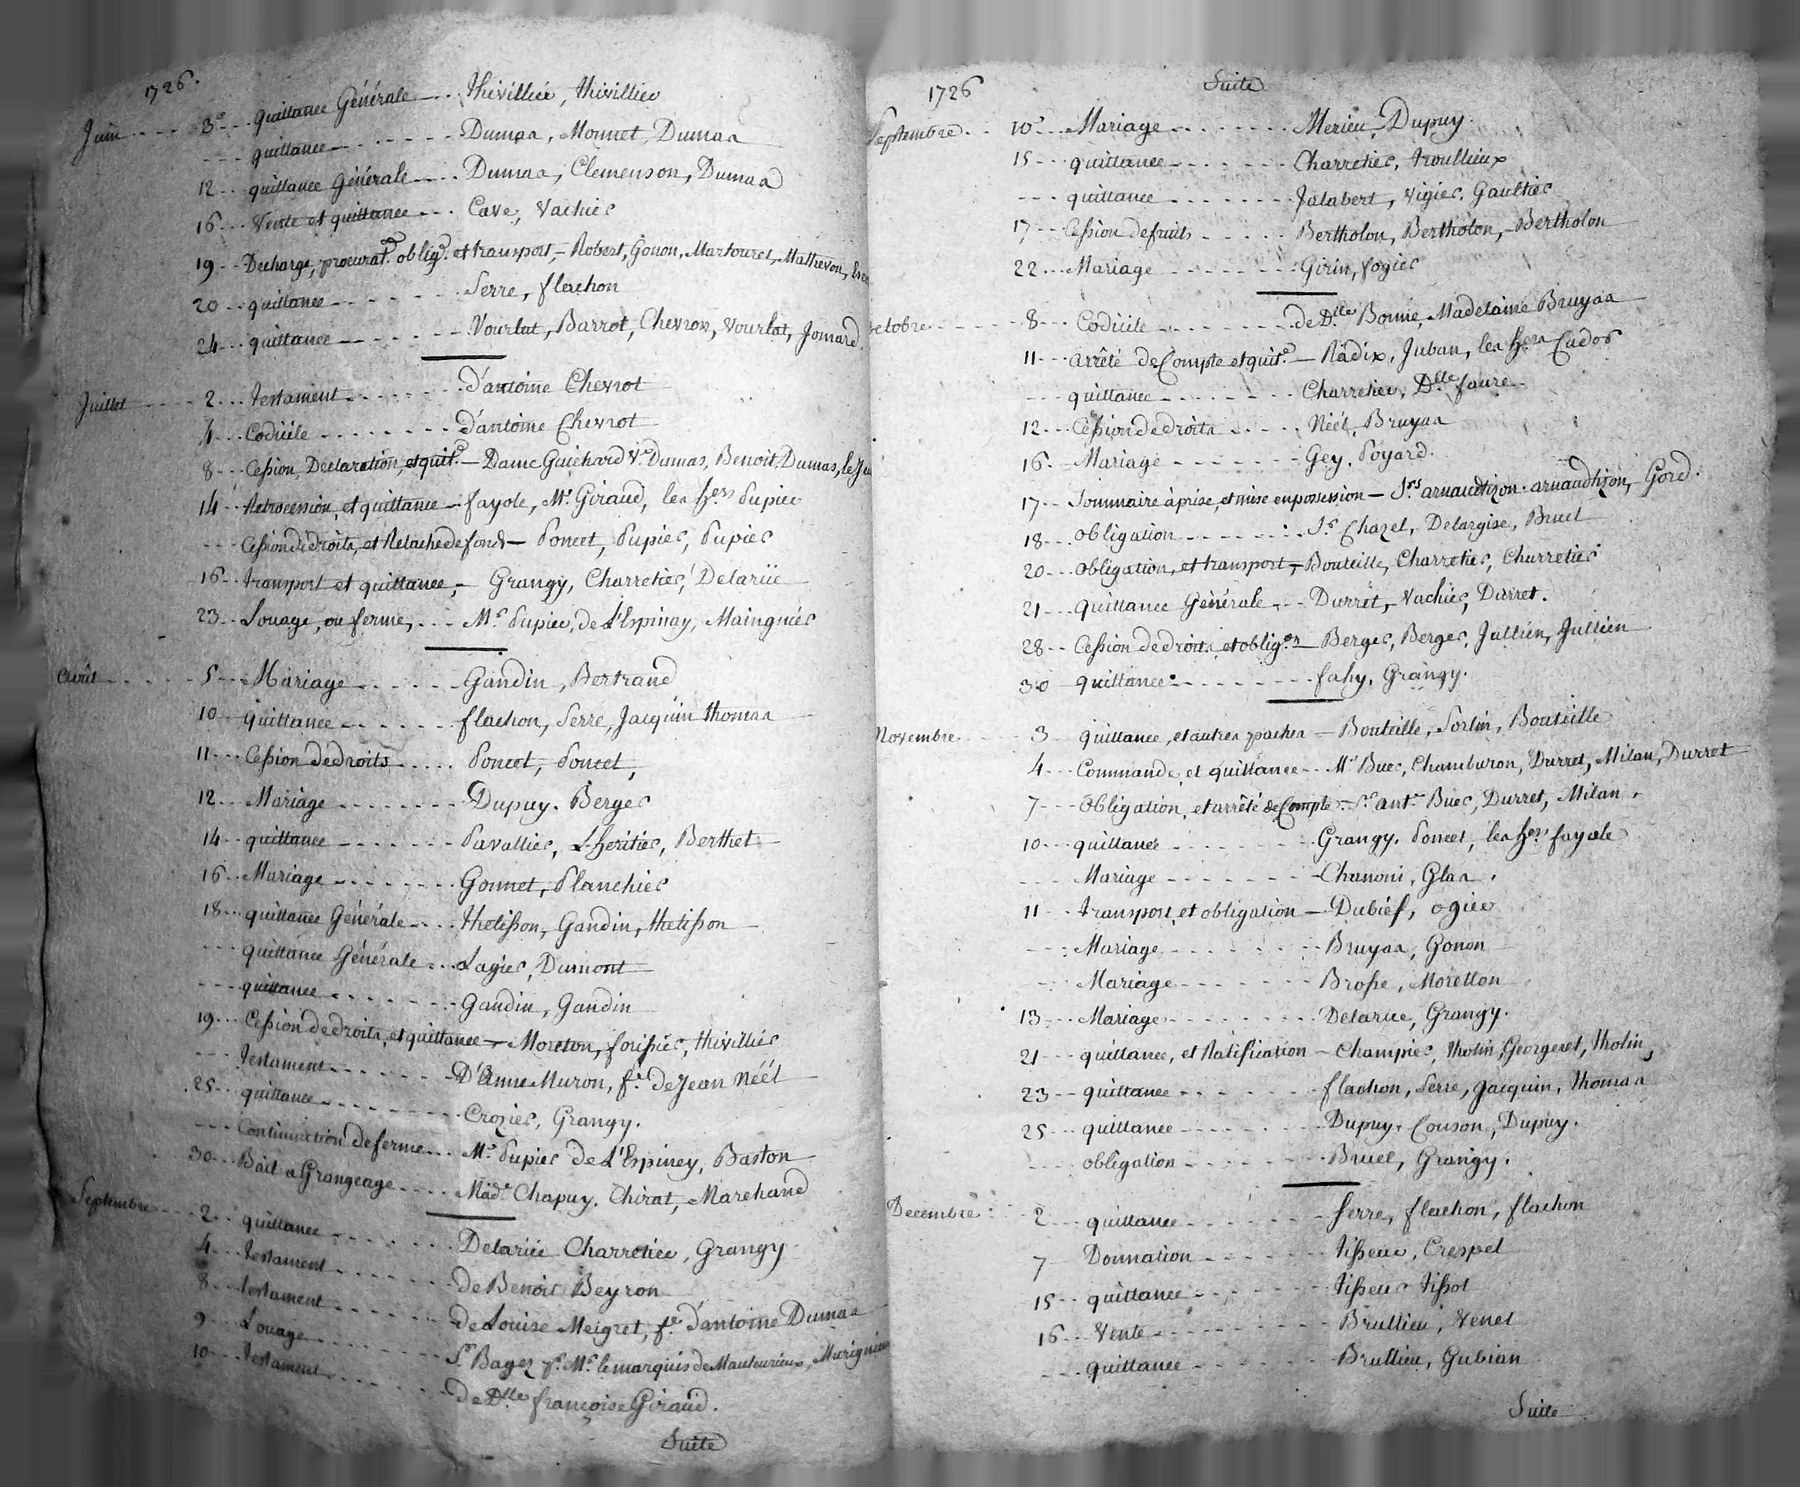 1726.
Juin 3e quittance Générale Thivillier, Thivillier
quittance Dumas, Monnet, Dumas
12 quittance Générale Dumas, Clemenson, Dumas
16 Vente et quittance Cave, Vachier
19 Decharge, procurat. oblig. et transport, Robert, Gonon, Martouret, Mathevon,
20 quittance Serre, flachon
24 quittance Vourlat, Barrot, Chevron, Vourlat, Jomard
Juillet 2 Testament d'antoine Chevrot
4 Codicile d'antoine Chevrot
8 Cession, Declaration, et quit.ce Dame Guichard Ve Dumas, Benoit Dumas,
14 Retrocession, et quittance fayole, Mr Giraud, les hers Pupier
Cession de droits, et Relache de fond Poncet, Pupier, Pupier
16 transport et quittance, Grangy, Charretier, Delarüe
23 Louage, ou ferme, Mr Pupier, de L'Espinay, Maingnier
Août 5 Mariage Gandin, Bertrand
10 quittance flachon, Serre, Jacquin Thomas
11 Cession de droits Poncet, Poncet,
12 Mariage Dupuy. Berger
14 quittance Pavallier, L'heritier, Berthet
16 Mariage Gonnet, Planchier
18 quittance Générale Thelisson, Gandin, Thelisson
quittance Générale Lagier, Dumont
quittance Gandin, Gandin
19 Cession de droits, et quittance Moreton, forissier, Thivillier
Testament D'Anne Muron, fe de Jean Néél
25 quittance Crozier, Grangy.
Continuation de ferme Mr Pupier de L'Espiney, Baston
30 Bail a Grangeage Made Chapuy. Chirat, Marchand
Septembre 2 quittance Delarüe Charretier, Grangy
4 Testament de Benoit Beyron
8 Testament de Louise Meigret, fe d'antoine Dumas
9 Louage Sr Bages pr Mr le marquis de
10 Testament de Dlle françoise Giraud.
Suite
1726 Suite
Septembre 10 Mariage Merieu, Dupuy.
15 quittance Charretier, Troullieux
quittance Jalabert, Vigier, Gaultier
17 Cession de fruits Bertholon, Bertholon, Bertholon
22 Mariage Girin, fogier
octobre 8 Codicile de Dlle Bonne Madelaine Bruyas
11 arrêté de Compte et quit.ce Radix, Juban, les hers Cados
quittance Charretier, Dlle faure
12 Cession de droits Néél, Bruyas
16. Mariage Gey, Poyard.
17 Sommaire à prise, et mise en possession Srs arnaudtizon arnaudtizon, Gord.
18 obligation Sr Chazel, Delargise, Bruel
20 obligation, et transport, Bouteille, Charretier, Charretier
21 quittance Générale Durret, Vachier, Durret.
28 Cession de droits, et oblig.on Berger, Berger, Jullien, Jullien
30 quittance fahy, Grangy.
Novembre 3 quittance, et autres paches Bouteille, Sorlin, Bouteille
4 Commande, et quittance Mr Buer, Chamburon, Durret, Milan, Durret
7 Obligation, et arrêté de Compte Sr ant. Buer, Durret, Milan.
10 quittance Grangy, Poncet, les hers fayole
Mariage Chanoni, Glas.
11 transport, et obligation Dubief, ogier
Mariage Bruyas, Gonon
Mariage Brosse, Moretton
13 Mariage Delarue, Grangy.
21 quittance, et Ratification Champier, Tholin, Georgeret, Tholin,
23 quittance flachon, Serre, Jacquin, Thomas
25 quittance Dupuy, Couson, Dupuy.
obligation Bruel, Grangy.
Decembre 2 quittance Serre, flachon, flachon
7 Donnation Tisseur, Crespel
15 quittance Tisseur Tissot
16 Vente Brullieu, Venet
quittance Brullieu, Gubian
Suite